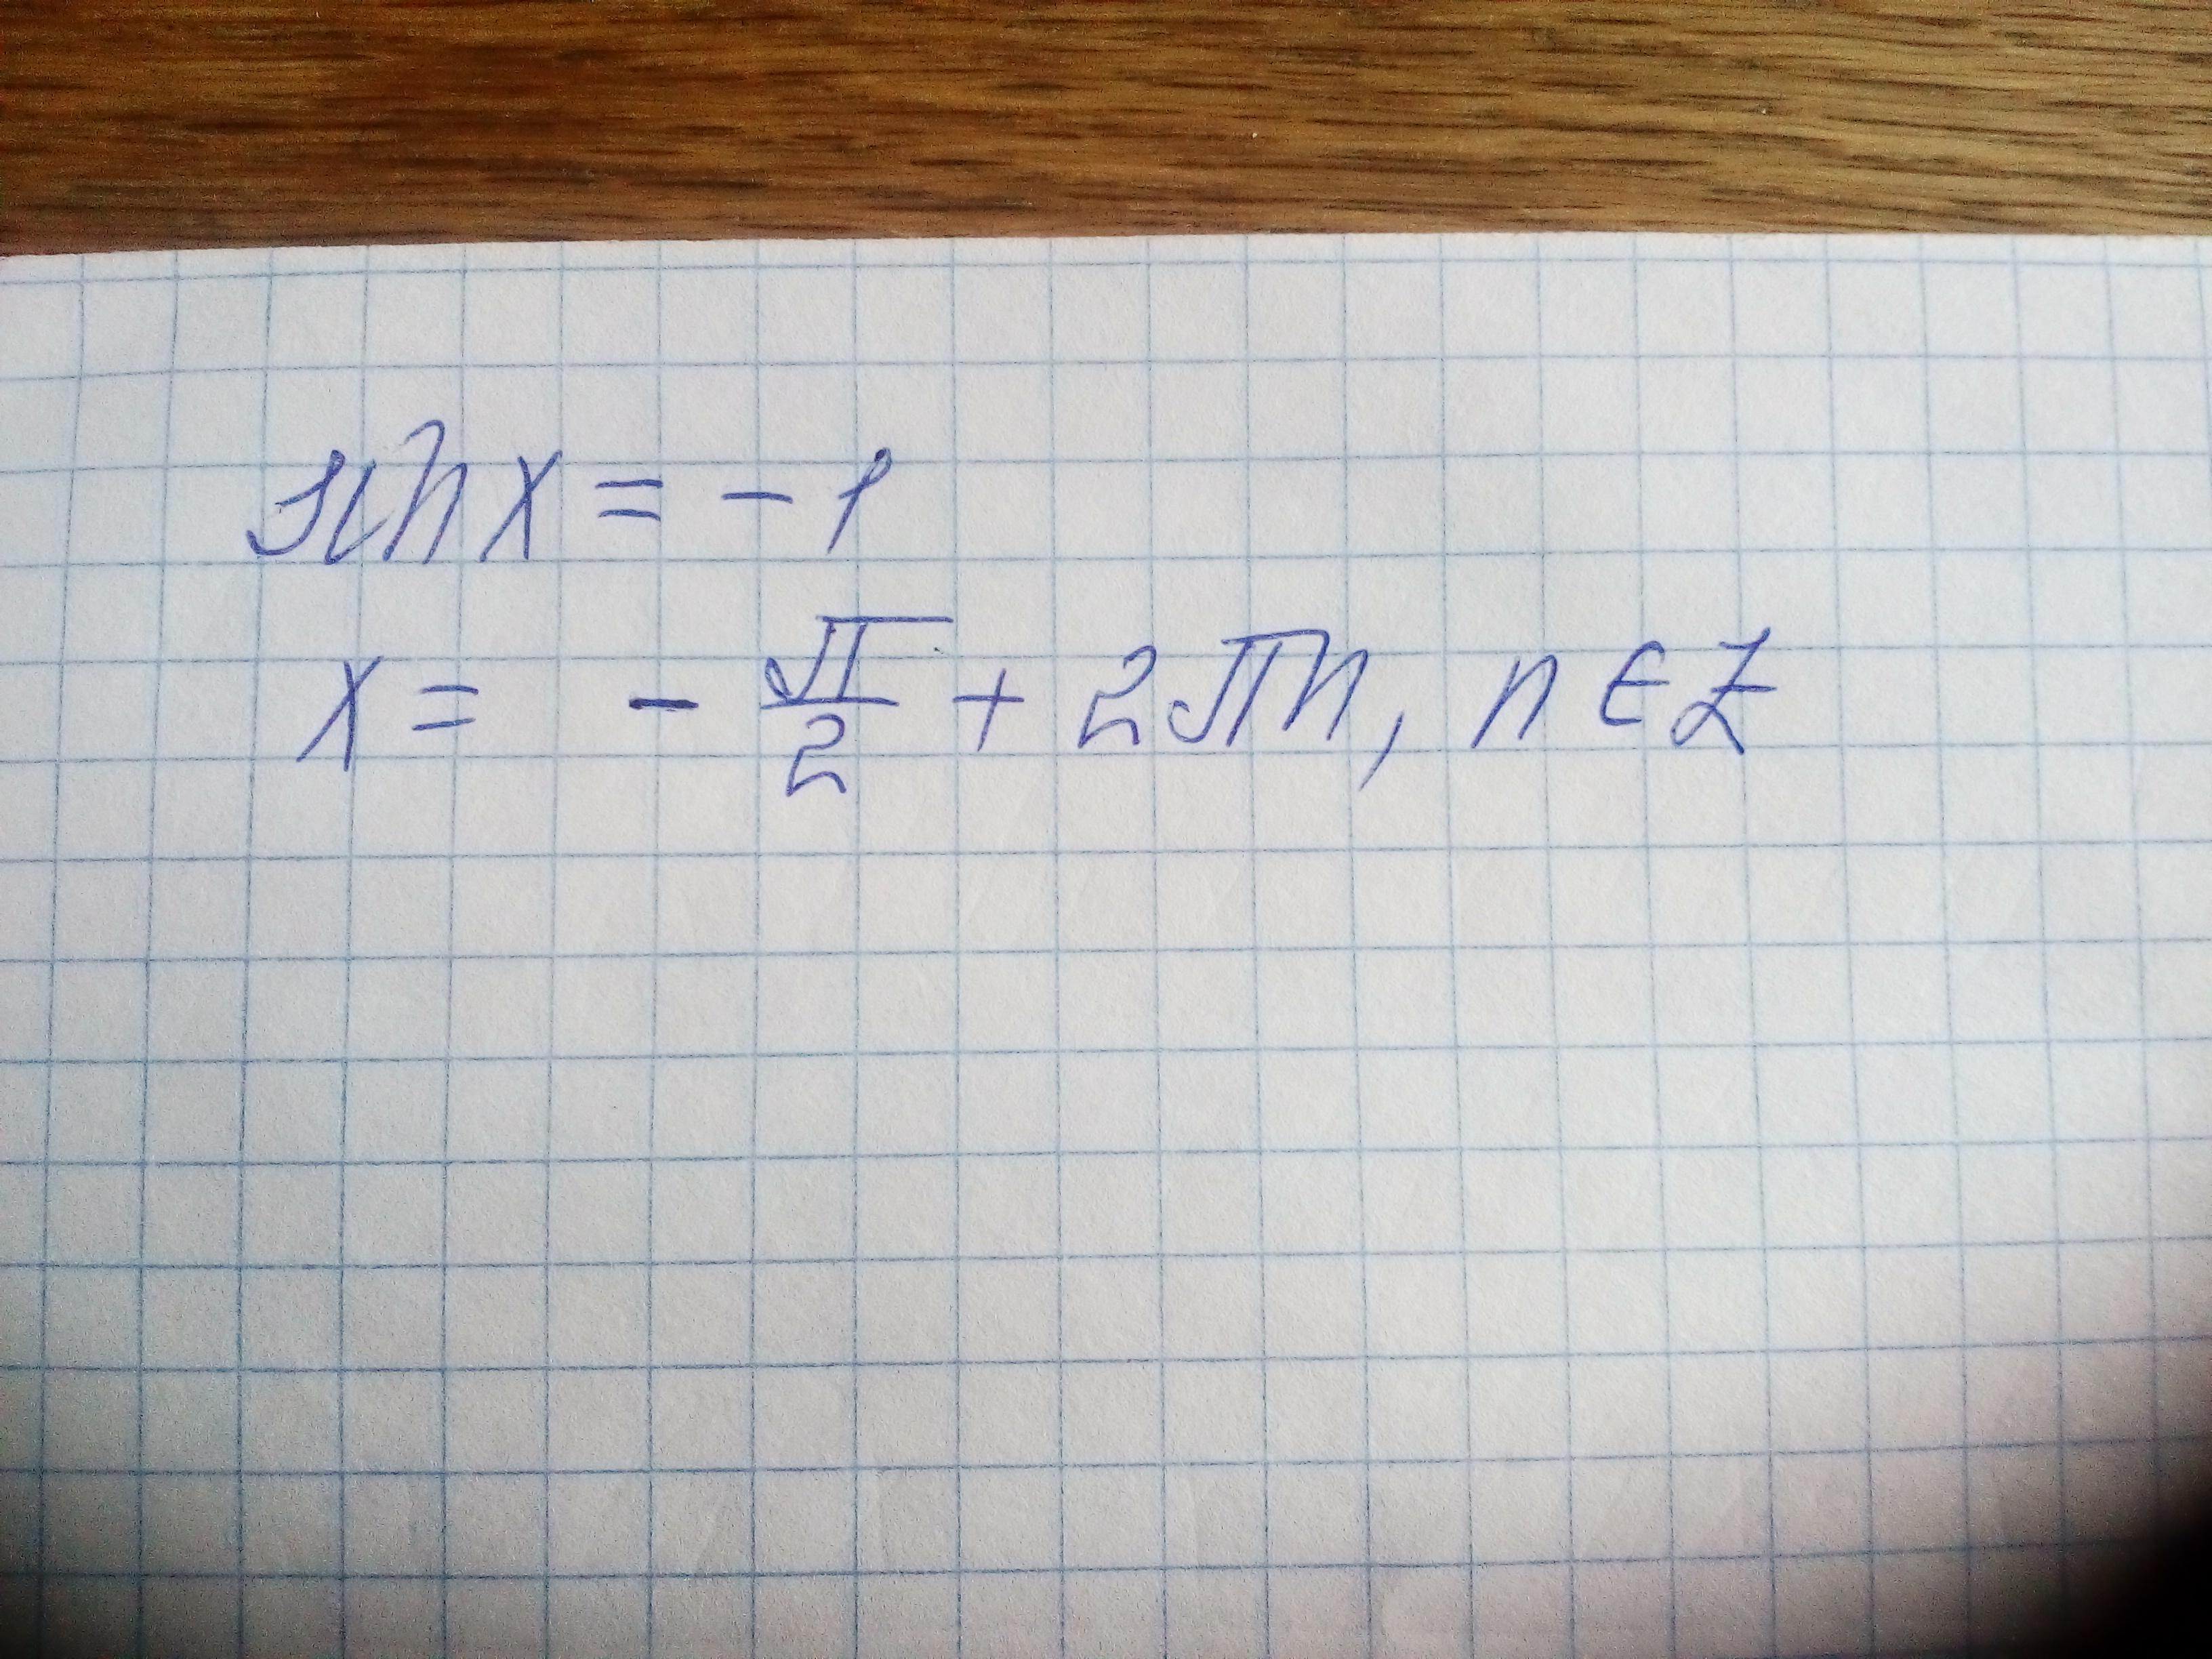 sin x = - 1
x = - π/2 + 2πn, n ∈ Z